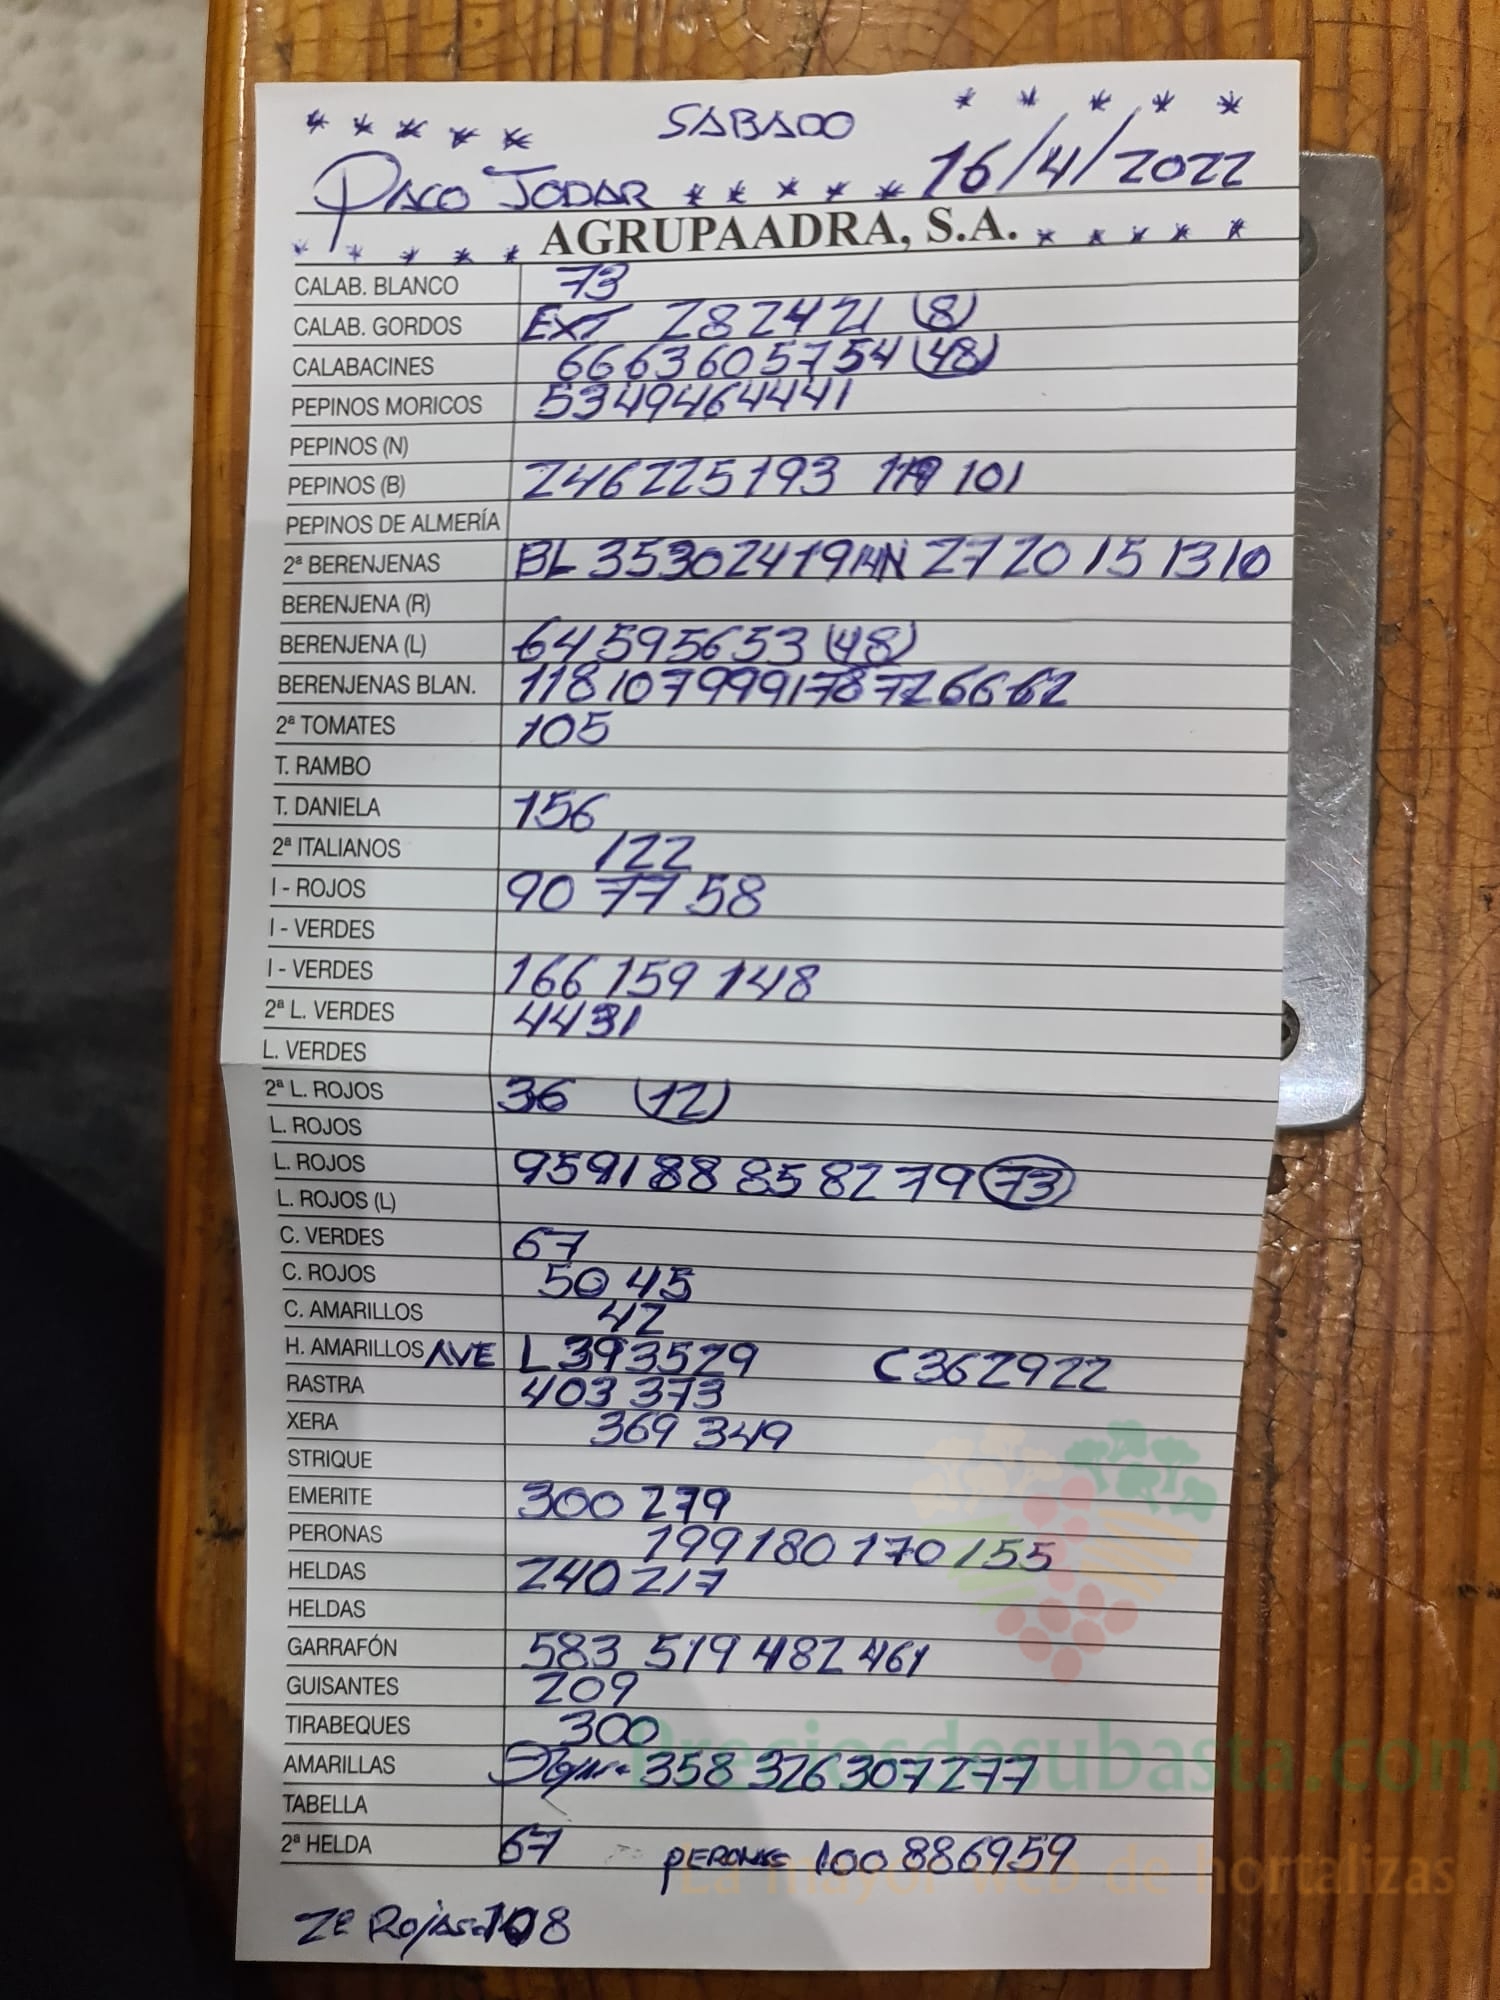 * * * * * SABADO * * * * *
PACO JODAR * * * * * 16/4/2022
* * * * * AGRUPAADRA, S.A. * * * * *
CALAB. BLANCO 73
CALAB. GORDOS EXT 282421 (8)
CALABACINES 6663605754 (48)
PEPINOS MORICOS 5349464441
PEPINOS (N)
PEPINOS (B) 246225193 119 101
PEPINOS DE ALMERÍA
2ª BERENJENAS BL 353024191414N 2720151310
BERENJENA (R)
BERENJENA (L) 64595653 (48)
BERENJENAS BLAN. 1181079991787266662
2ª TOMATES 105
T. RAMBO
T. DANIELA 156
2ª ITALIANOS 122
I - ROJOS 90 77 58
I - VERDES
I - VERDES 166 159 148
2ª L. VERDES 4431
L. VERDES
2ª L. ROJOS 36 (12)
L. ROJOS
L. ROJOS 959188 858279 (73)
L. ROJOS (L)
C. VERDES 67
C. ROJOS 50 45
C. AMARILLOS 42
H. AMARILLOS AVE L393529 C362922
RASTRA 403 373
XERA 369 349
STRIQUE
EMERITE 300 279
PERONAS 199180 170155
HELDAS 240217
HELDAS
GARRAFÓN 583 519 482 461
GUISANTES 209
TIRABEQUES 300
AMARILLAS 358 326307277
TABELLA
2ª HELDA 67 PERONAS 100886959
2ª Rojas 108
Preciosdesubasta.com
La mayor web de hortalizas